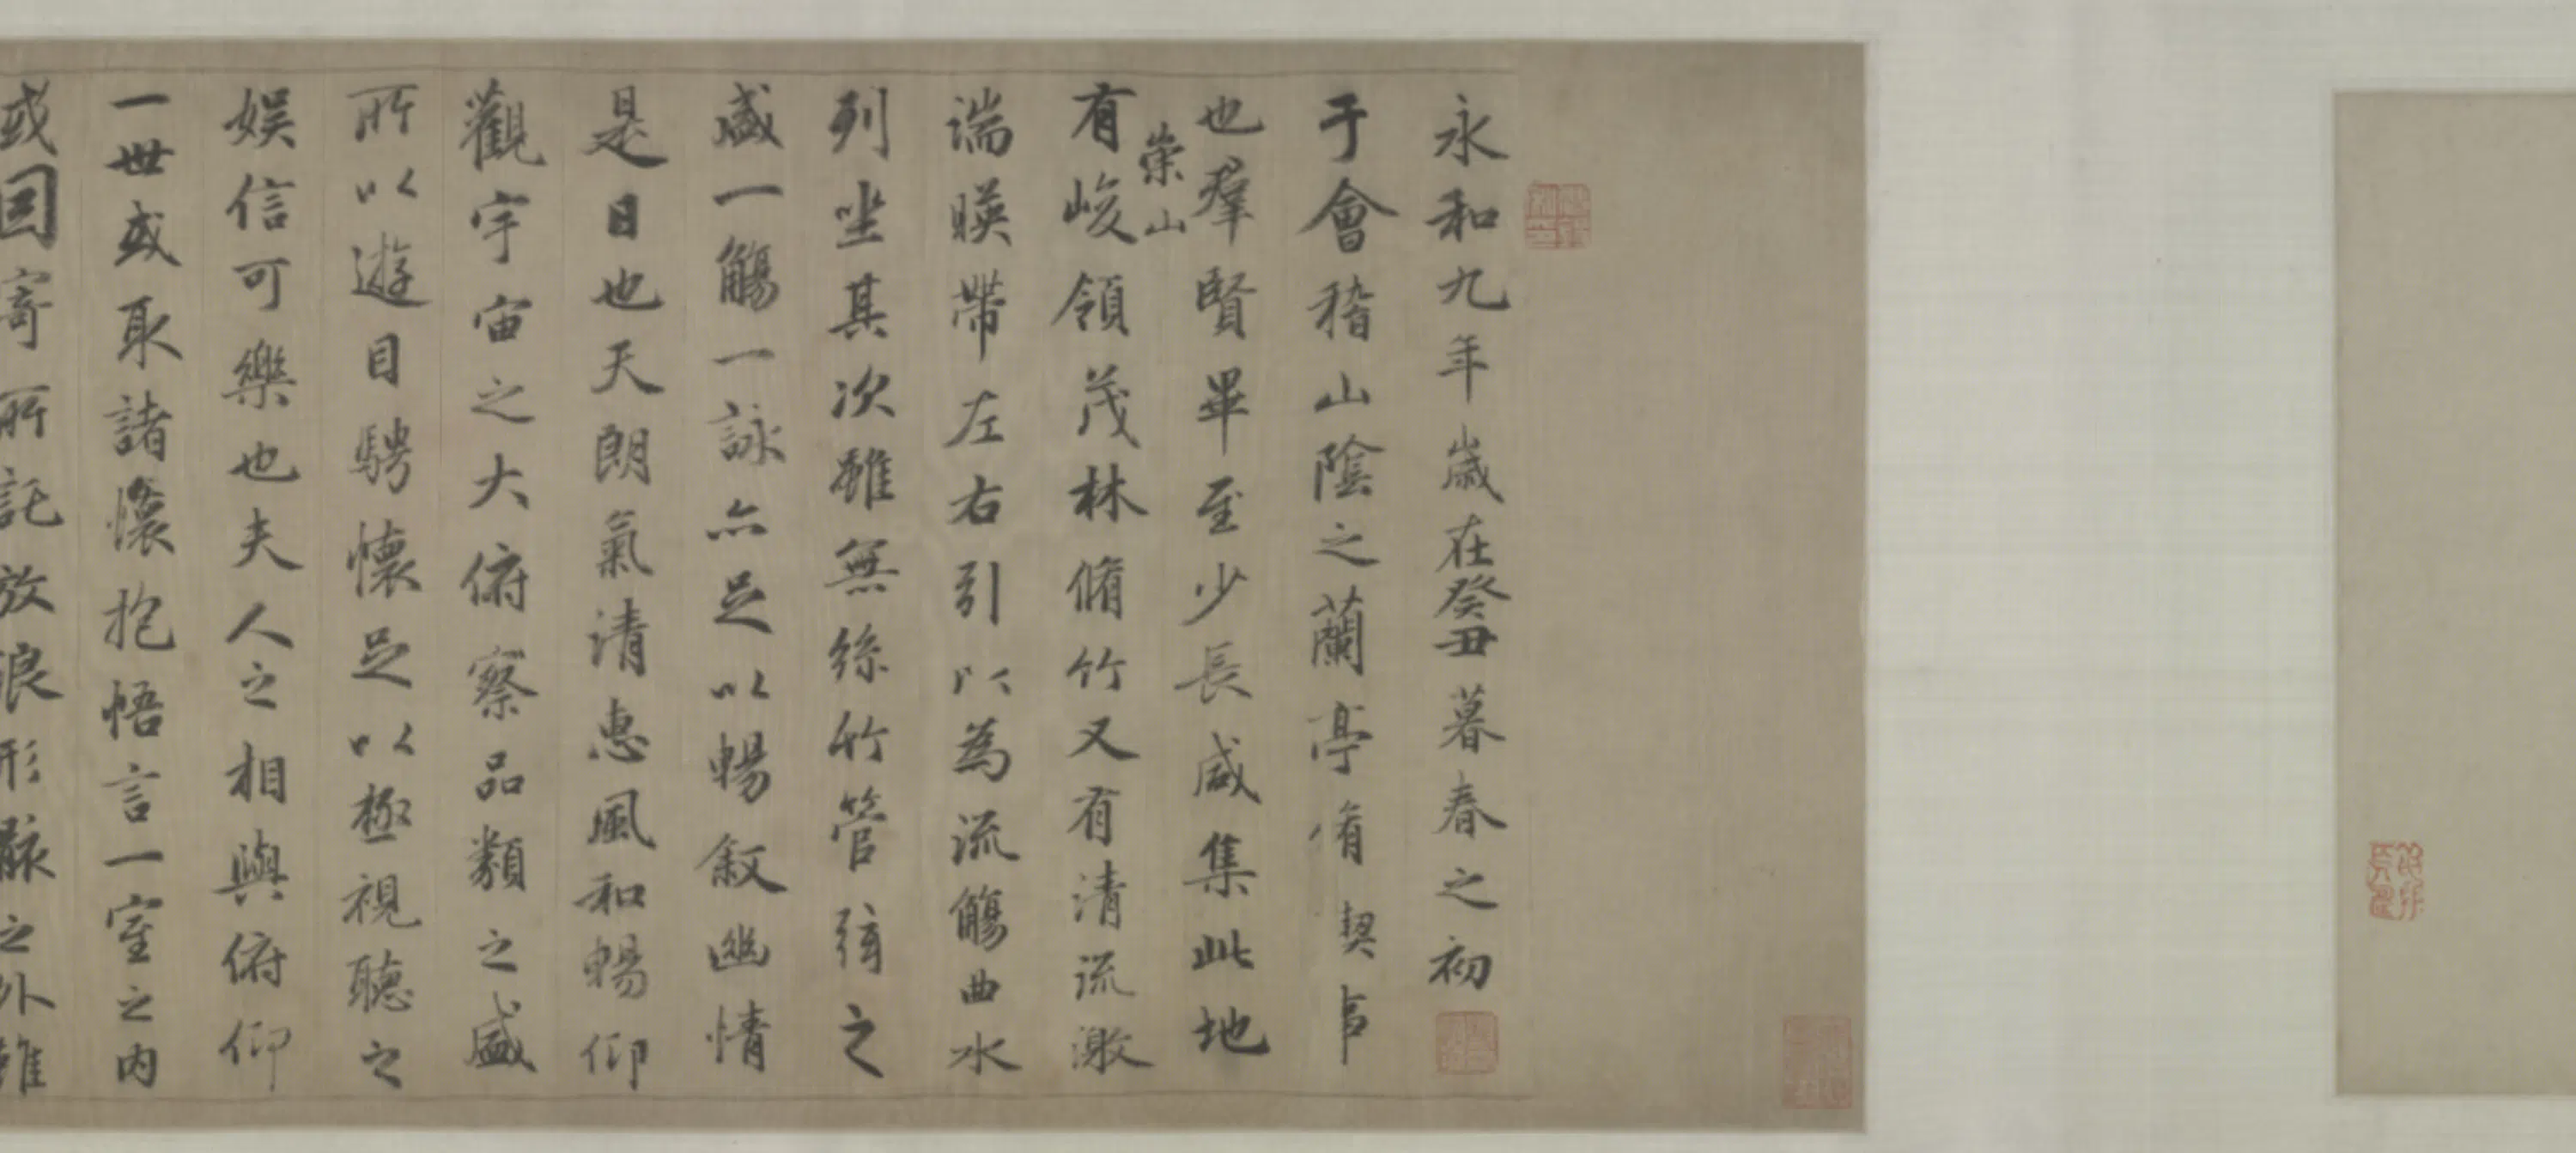 永和九年歲在癸丑暮春之初
于會稽山陰之蘭亭脩稧事
也羣賢畢至少長咸集此地
崇山
有峻領茂林脩竹又有清流激
湍暎帶左右引以為流觴曲水
列坐其次雖無絲竹管弦之
盛一觴一詠亦足以暢敘幽情
是日也天朗氣清惠風和暢仰
觀宇宙之大俯察品類之盛
所以遊目騁懷足以極視聽之
娛信可樂也夫人之相與俯仰
一世或取諸懷抱悟言一室之內
或因寄所託放浪形骸之外雖